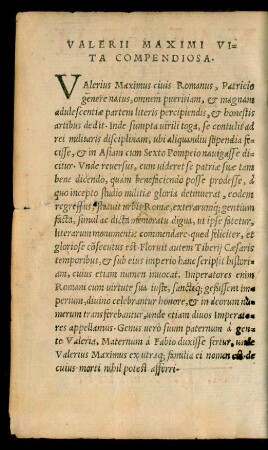 VALERII MAXIMI VI-
TA COMPENDIOSA.
VAlerius Maximus ciuis Romanus, Patricio
genere natus, omnem pueritiam, & magnam
adulescentiæ partem literis percipiendis, & honestis
artibus dedit. Inde sumpta uirili toga, se contulit ad
rei militaris disciplinam, ubi aliquandiu stipendia fe-
cisse, & in Asiam cum Sexto Pompeio nauigasse di-
citur. Vnde reuersus, cum uideret se patriæ suæ tam
bene dicendo, quam beneficiendo posse prodesse, à
quo incepto studio militiæ gloria detinuerat, eodem
regressus, statuit urbis Romæ, exterarumq; gentium
facta, simul ac dicta memoratu digna, ut ipse fatetur,
literarum monumentis commendare. quod feliciter, et
gloriose cōsecutus est. Floruit autem Tiberij Cæsaris
temporibus, & sub eius imperio hanc scripsit histori-
am, cuius etiam numen inuocat. Imperatores enim
Romani cum uirtute sua iuste, sancteq; gessissent im-
perium, diuino celebrantur honore, & in deorum nu-
merum transferebantur, unde etiam diuos Imperato-
res appellamus. Genus uerò suum paternum à gen-
te Valeria, Maternum à Fabio duxisse fertur, unde
Valerius Maximus ex utraq; familia ei nomen est. de
cuius morti nihil potest afferri.